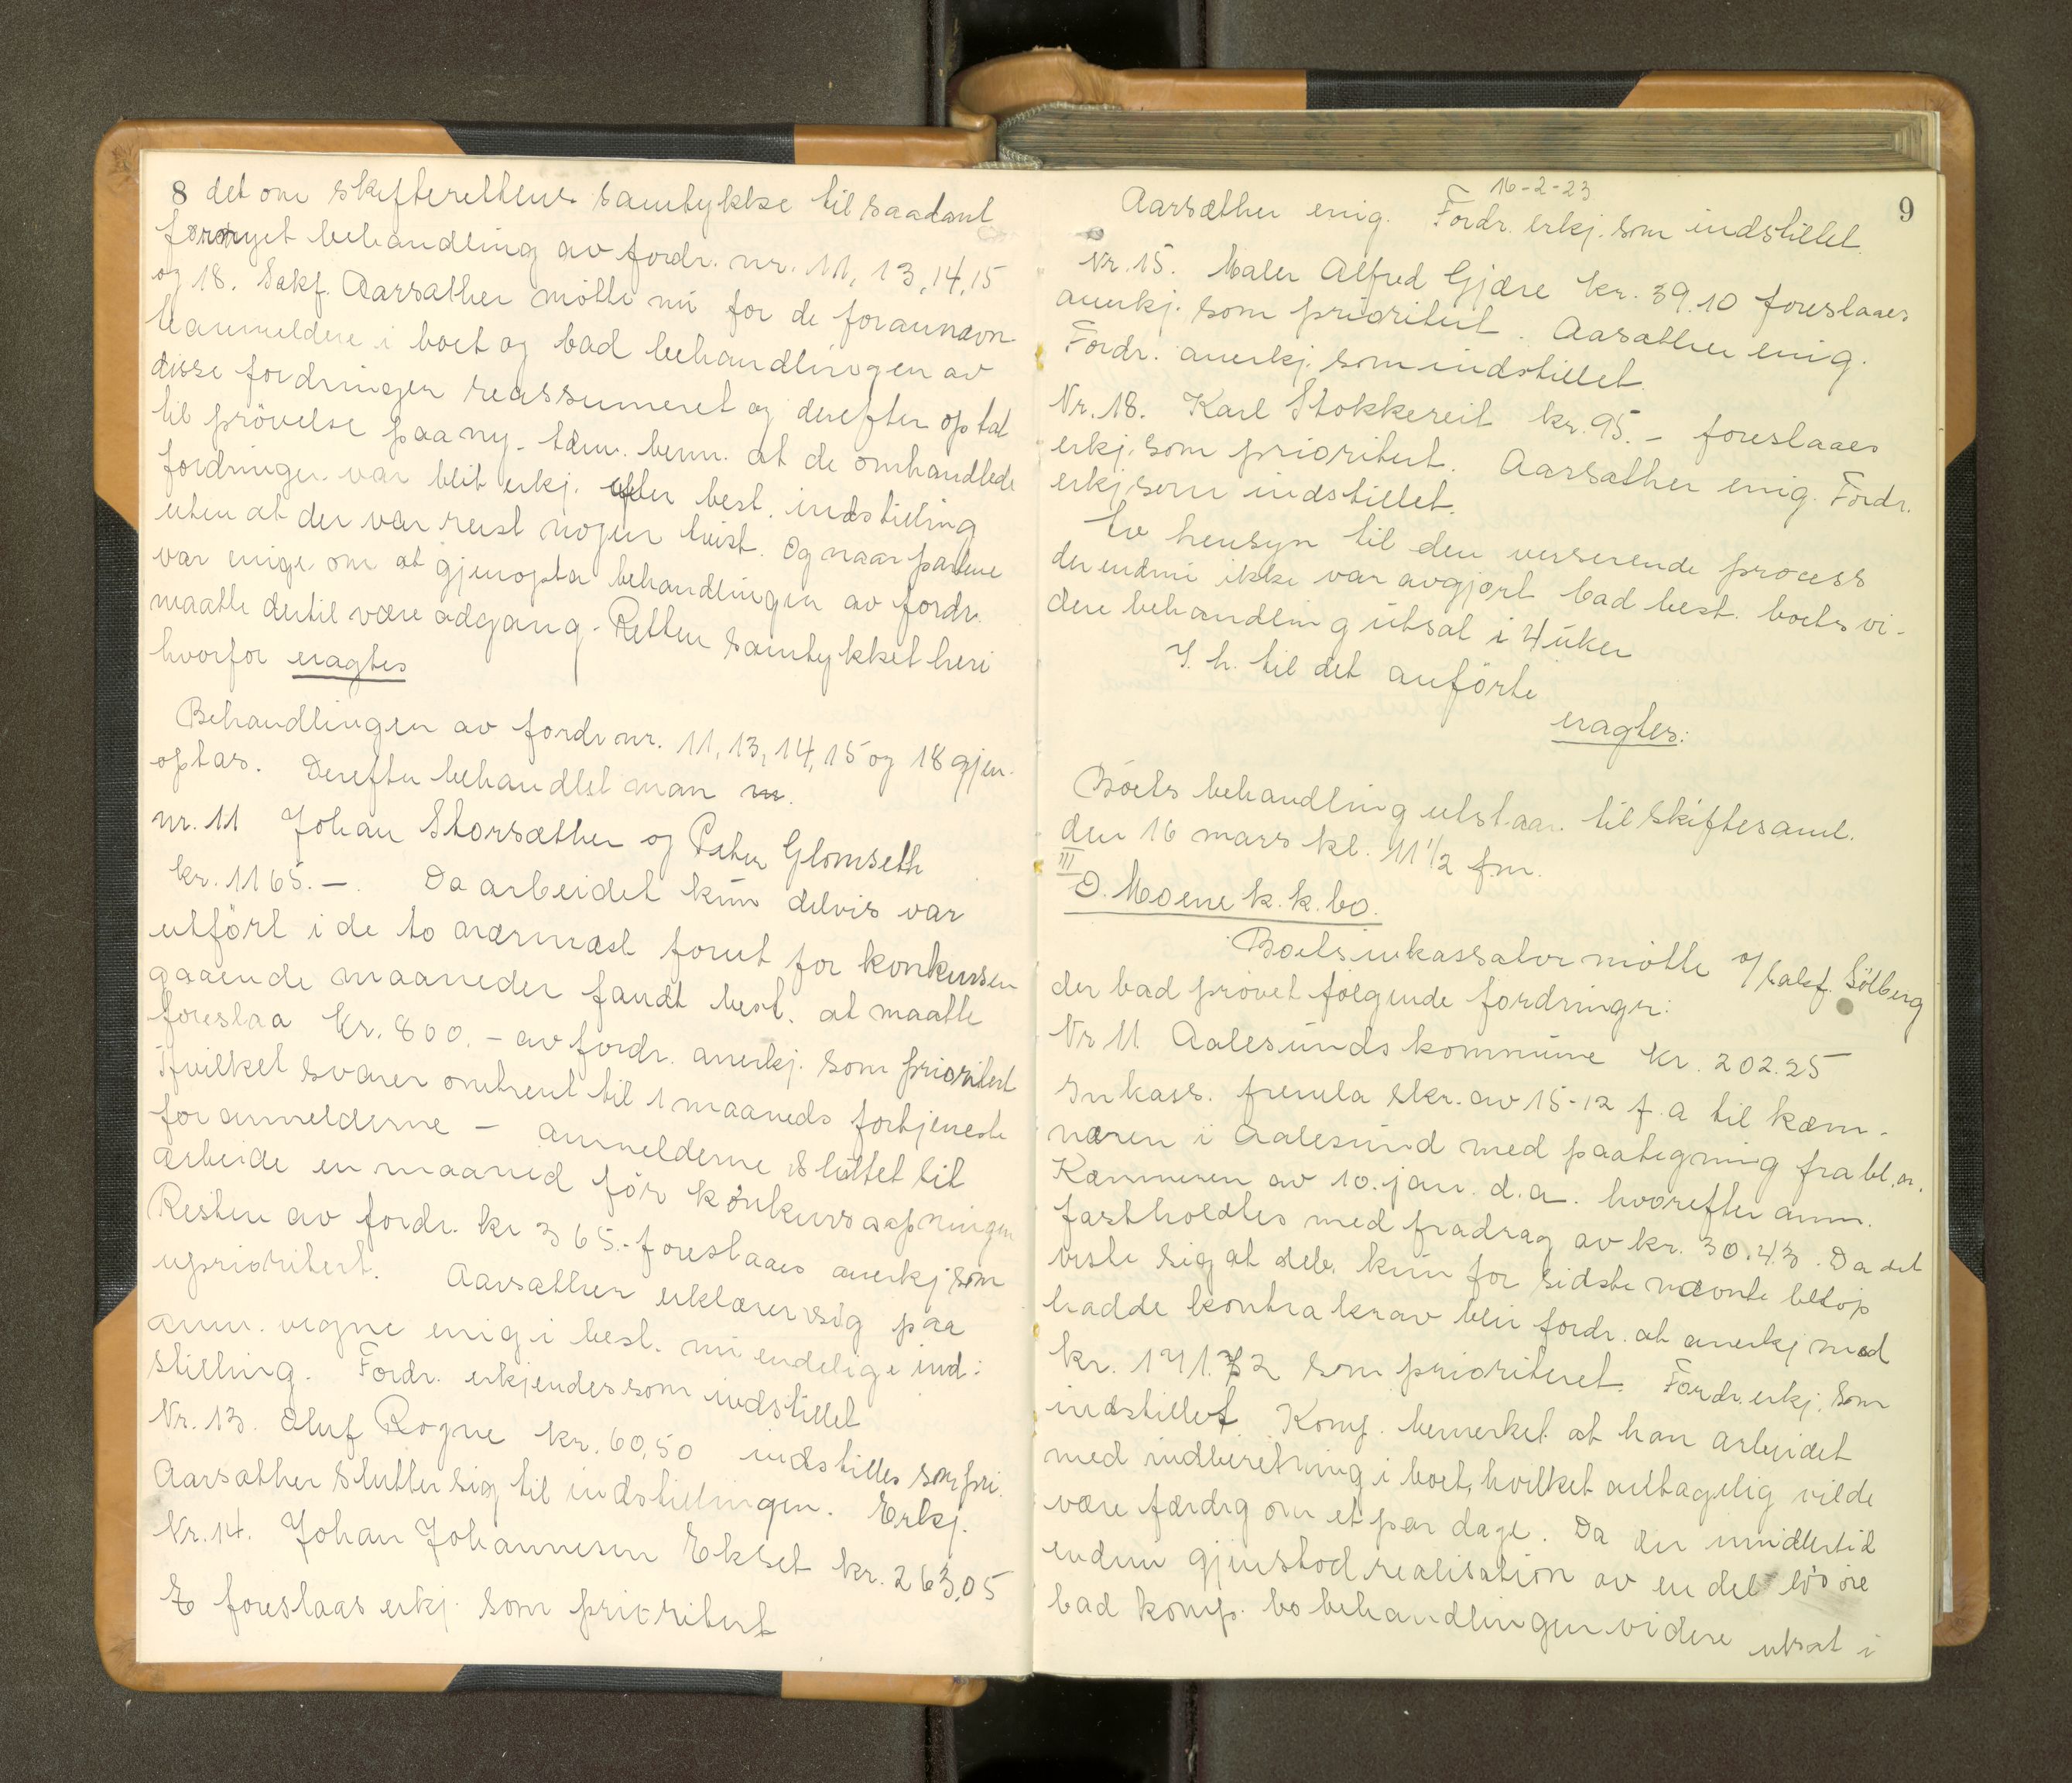 8 det om skifterettens samtykke til saadant
fornyet behandling av fordr. nr. 11, 13, 14, 15
og 18. Sakf. Aarsæther mötte nu for de forannævn
te anmeldere i boet og bad behandlingen av
disse fordringer reassumeret og derefter optat
til prövelse paa ny. bem. at de omhandlede
fordringer var blit erkj. efter best. indstilling
uten at der var reist nogen tvist. Og naar partene
var enige om at gjenopta behandlingen av fordr.
maatte dertil være adgang. Retten samtykket heri
hvorfor eragtes
Behandlingen av fordr nr. 11, 13, 14, 15 og 18 gjen-
optas. Derefter behandlet man
nr. 11 Johan Storsæther og Peter Glomseth
kr. 1165.-. Da arbeidet kun delvis var
utført i de to nærmæst forut for konkursen
gaaende maaneder fandt best. at maatte
foreslaa kr. 800.- av fordr. anerkj. som prioritert
Hvilket svarer omtrent til 1 maaneds fortjeneste
for anmelderne - anmelderne sluttet sit
arbeide en maaned för konkursaapningen
Resten av fordr. kr 365.- foreslaaes anerkj som
uprioritert. Aarsæther erklærer sig paa
anm. vegne enig i best. nu endelige ind-
stilling. Fordr. erkjendes som indstillet
Nr. 13. Oluf Rogne kr. 60,50 indstilles som pri.
Aarsæther slutter sig til indstillingen. Erkj.
Nr. 14. Johan Johannesen Ekset kr. 263,05
foreslaas erkj. som prioritert
16-2-23
9
Aarsæther enig. Fordr. erkj. som indstillet.
Nr. 15. Maler Alfred Gjære kr. 39.10 foreslaaes
anerkj. som prioritert. Aasæther enig.
Fordr. anerkj. som indstillet.
Nr. 18. Karl Stokkereit kr. 95.- foreslaaes
erkj. som prioritert. Aarsæther enig. Fordr.
erkj. som indstillet.
Av hensyn til den verserende process
der endnu ikke var avgjort bad best. boets vi-
dere behandling utsat i 4 uker
I. h. til det anförte
eragtes:
Boets behandling utstaar til skiftesaml.
den 16 mars kl. 11 1/2 fm.
III
O. Moene k. k. bo.
Boets inkassator mötte v/ sakf. Sölberg
der bad prövet fölgende fordringer:
Nr 11 Aalesunds kommune kr. 202.25
Inkass. fremla skr. av 15-12 f. a til kæm-
neren i Aalesund med paategning fra bl. a.
Kæmneren av 10. jan. d.a. hvorefter anm.
fastholdtes med fradrag av kr. 30.43. Da det
viste sig at deb. kun for sidste nævnte belöp
hadde kontrakrav blir fordr. at anerkj med
kr. 171.72 som prioriteret. Fordr. erkj. som
indstillet. Komp. bemerket at han arbeidet
med indberetning i boet, hvilket antagelig vilde
være færdig om et par dage. Da der imidlertid
endnu gjenstod realisation av en del lösöre
bad komp. bobehandlingen videre utsat i